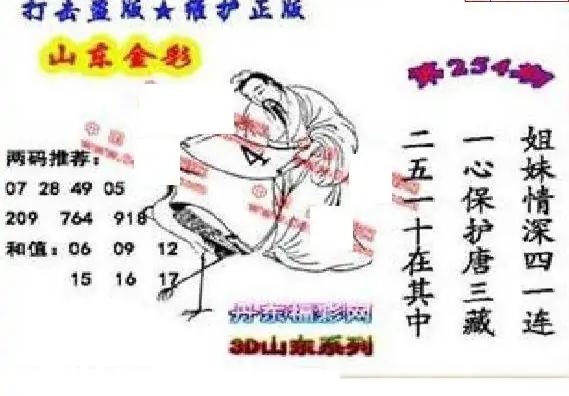 打击盗版★维护正版
山东金彩
第254期
两码推荐:
07 28 49 05
209 764 918
和值: 06 09 12
15 16 17
4
姐妹情深四一连
一心保护唐三藏
二五一十在其中
丹东福彩网
3D山东系列